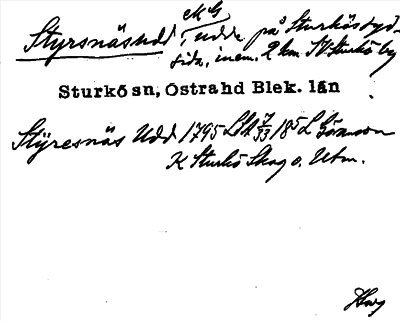 MG
Styrsnäsudd, udde på Sturkös syd-
sida, inem. 2 km SV Sturkö by
Sturkö sn, Östrahd Blek. län
Styresnäs Udd 1795 LSA 7/33 185 L Göranson
K Sturkö Skog o. Utm.